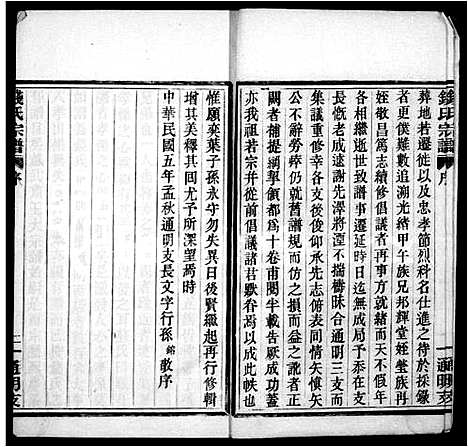 錢氏宗譜
序
一
通明支
葬地若遷徙以及忠孝節烈科名仕進之待於採錄
者更僕難數追溯光緒甲午族兄邦輝堂姪瑩族再
姪敬昌篤志續修倡議者再事方就緒而天不假年
各相繼逝世致譜事遷延時日迄無成局予伏處在下
長慨老成遠謝先澤將湮不揣檮昧合通明三支而
集議重修幸各支後俊仰承先志俯表同情矢慎矢
公不辭勞瘁仍就舊譜規而仿之損而益之訛者正之
闕者補之擴創譜都為十卷甫閱半載告厥成功蓋
亦我祖若宗幷從前倡議諸君默眷焉以成此帙也
惟願奕葉子孫永守勿失異日後賢繼起再行修輯
增其美釋其回尤予所深望焉時
中華民國五年孟秋通明支長文字行孫銘敎序
錢氏宗譜
序
二
通明支